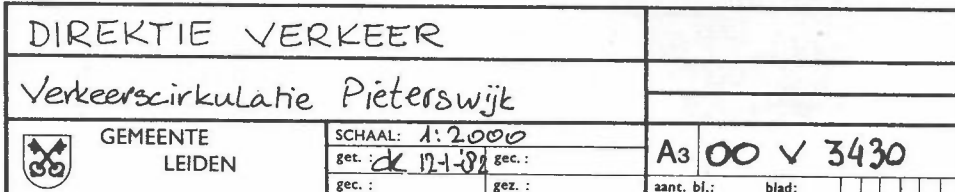 DIREKTIE VERKEER
Verkeerscirkulatie Pieterswijk
GEMEENTE LEIDEN
SCHAAL: 1:2000
get. : dk 12-1-'82 gec. :
gec. : gez. :
A3 00 V 3430
aant. bl.: blad: